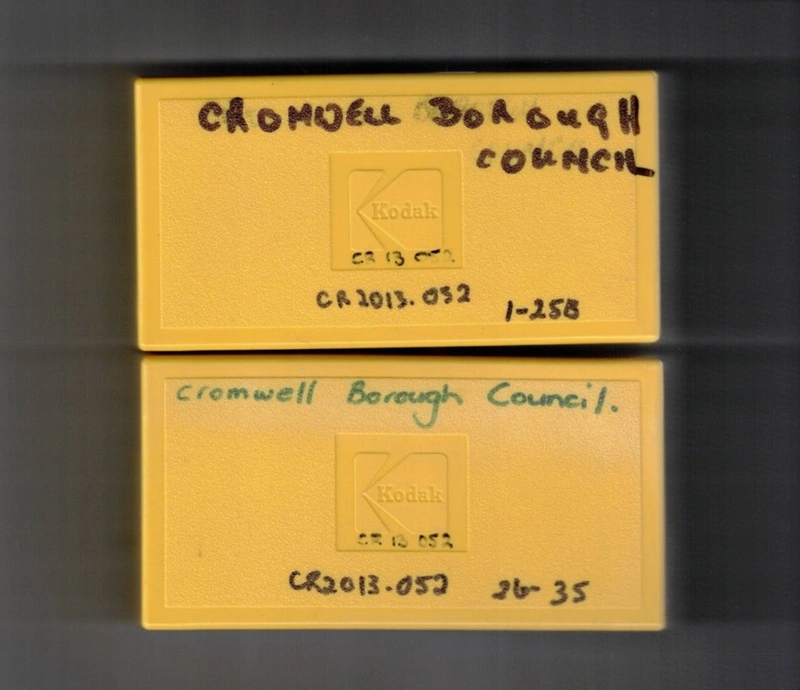 CROMWELL BOROUGH
COUNCIL
Kodak
CR 13 052
CR2013.052
1-25B
Cromwell Borough Council.
Kodak
CR 13 052
CR2013.052
26-35